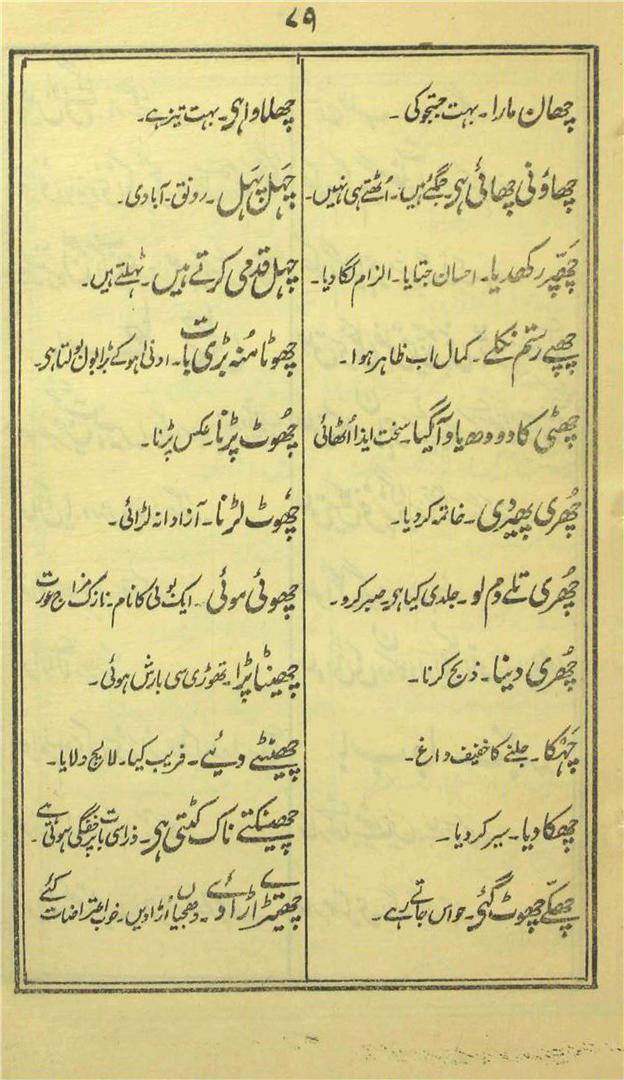 ۷۹
چھان مارا۔ بہت جستجو کی۔
چھاؤنی چھائی ہی۔ جمگئے ہیں۔ اُٹھتے ہی نہیں۔
چھپّر رکھدیا۔ احسان جتایا۔ الزام لگا دیا۔
چھپے رستم نکلے۔ کمال اب ظاہر ہوا۔
چھٹی کا دودھ یاد آگیا۔ سخت ایذا اُٹھائی
چُھری پھیردی۔ خاتمہ کردیا۔
چُھری تلے دم لو۔ جلدی کیا ہی۔ صبر کرو۔
چُھری دینا۔ ذبح کرنا۔
چہکا۔ جلنے کا خفیف داغ۔
چھکا دیا۔ سیر کردیا۔
چھکّے چھوٹ گئی۔ حواس جاتے رہے۔
چھلاوا ہی۔ بہت تیز ہے۔
چہل پہل۔ رونق۔ آبادی۔
چہل قدمی کرتے ہیں۔ ٹہلتے ہیں۔
چھوٹا مُنہ بڑی بات۔ ادنیٰ ہوکے بڑا بول بولتا ہی۔
چُھوٹ پڑنا۔ عکس پڑنا۔
چُھوٹ لڑنا۔ آزادانہ لڑائی۔
چھوئی موئی۔ ایک بوٹی کا نام۔ نازک مزاج عورت
چھینٹا پڑا۔ تھوڑی سی بارش ہوئی۔
چھینٹے دیئے۔ فریب کیا۔ لالچ دلایا۔
چھینکتے ناک کٹتی ہی۔ ذراسی بات پر خفگی ہوتی ہے۔
چھیتڑے اڑا دئے۔ دھجیاں اُڑادیں۔ خوب اعتراضات کئے